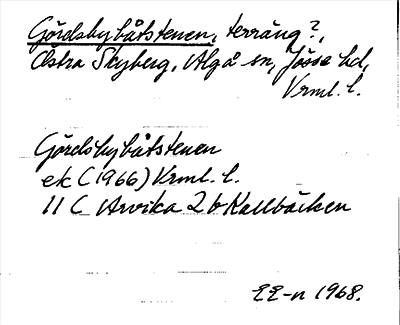 Gördsbybåtstenen, terräng?,
Östra Skyberg, Älgå sn, Jösse hd,
Vrml. l.
Gördsbybåtstenen
ek (1966) Vrml. l.
11 C Arvika 2 b Kallbäcken
EE-n 1968.